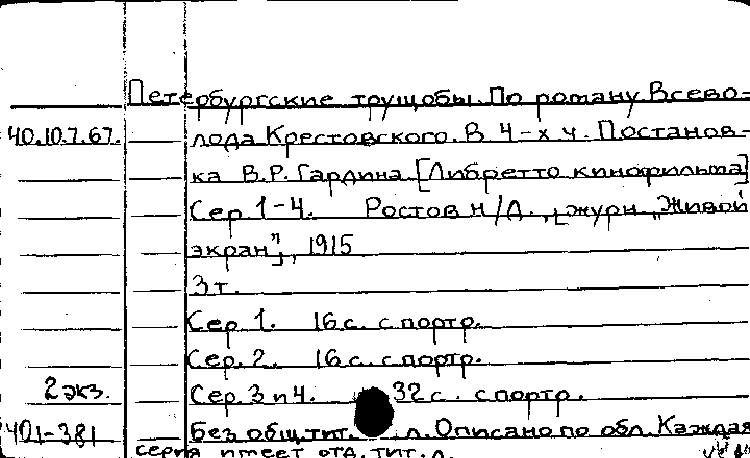 Петербургские трущобы. По роману Всево-
40.10.7.67. лода Крестовского. В 4-х ч. Постанов-
ка В.Р. Гардина. [Либретто кинофильма]
Сер. 1-4. Ростов н/Д., [журн. „Живой
экран"], 1915
3 т.
Сер. 1. 16 с. с портр.
Сер. 2. 16 с. с портр.
2 экз. Сер. 3 и 4. 32 с. с портр.
401-381 Без общ. тит. л. Описано по обл. Каждая
серия имеет отд. тит. л.